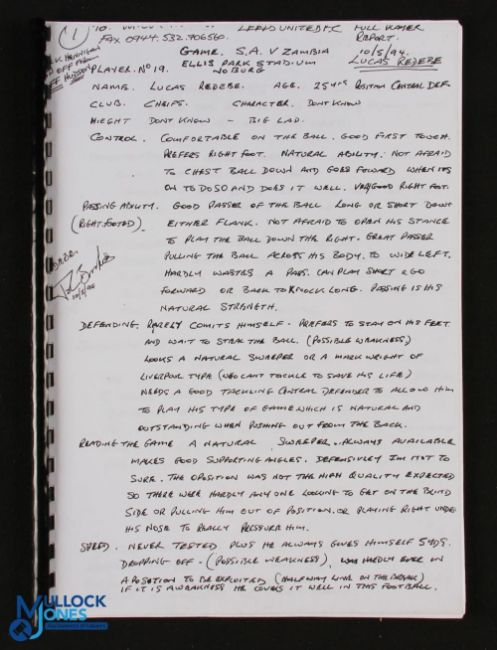 1
LEEDS UNITED F.C
FULL
FAX 0944.532.706560.
REPORT.
10/5/94.
GAME. S.A. V ZAMBIA
LUCAS REDEBE
PLAYER. No 19. ELLIS PARK STADIUM
NAME. LUCAS REDEBE. AGE. 25 YRS POSITION CENTRAL DEF.
CLUB. CHEIFS. CHARACTER. DONT KNOW
HIEGHT DONT KNOW - BIG LAD.
CONTROL. COMFORTABLE ON THE BALL. GOOD FIRST TOUCH.
PREFERS RIGHT FOOT. NATURAL ABILITY. NOT AFRAID
TO CHEST BALL DOWN AND GOES FOWARD WHEN ITS
ON TO DO SO AND DOES IT WELL. VERY GOOD RIGHT FOOT.
PASSING ABILITY. GOOD PASSER OF THE BALL LONG OR SHORT DOWN
(RIGHT FOOTED) EITHER FLANK. NOT AFRAID TO OPEN HIS STANCE
TO PLAY THE BALL DOWN THE RIGHT. GREAT PASSER
PULLING THE BALL ACROSS HIS BODY. TO WIDE LEFT.
HARDLY WASTES A PASS. CAN PLAY SHORT & GO
FORWARD OR BACK TO KNOCK LONG. PASSING IS HIS
NATURAL STRENGTH.
DEFENDING. RARELY COMITS HIMSELF. PREFERS TO STAY ON HIS FEET
AND WAIT TO STEAL THE BALL. (POSSIBLE WEAKNESS)
LOOKS A NATURAL SWEEPER OR A MARK WRIGHT OF
LIVERPOOL TYPE (WHO CANT TACKLE TO SAVE HIS LIFE)
NEEDS A GOOD TACKLING CENTRAL DEFENDER TO ALLOW HIM
TO PLAY HIS TYPE OF GAME WHICH IS NATURAL AND
OUTSTANDING WHEN PUSHING OUT FROM THE BACK.
READING THE GAME A NATURAL SWEEPER. ALWAYS AVAILABLE
MAKES GOOD SUPPORTING ANGLES. DEFENSIVLEY I'M NOT TO
SURE. THE OPOSITION WAS NOT THE HIGH QUALITY EXPECTED
SO THERE WERE HARDLY ANY ONE LOOKING TO GET ON THE BLIND
SIDE OR PULLING HIM OUT OF POSITION. OR PLAYING RIGHT UNDER
HIS NOSE TO REALLY PRESSURE HIM.
SPEED. NEVER TESTED PLUS HE ALWAYS GIVES HIMSELF 5 YDS.
DROPPING OFF - (POSSIBLE WEAKNESS), WAS HARDLY EVER IN
A POSITION TO BE EXPLOITED (HALFWAY LINE ON THE BREAK)
IF IT IS A WEAKNESS HE COVERS IT WELL IN THIS FOOTBALL.
MULLOCK
JONES